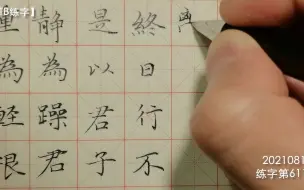 B练字】
重為輕根
靜為躁君
是以君子
終日行不
2021081
练字第61